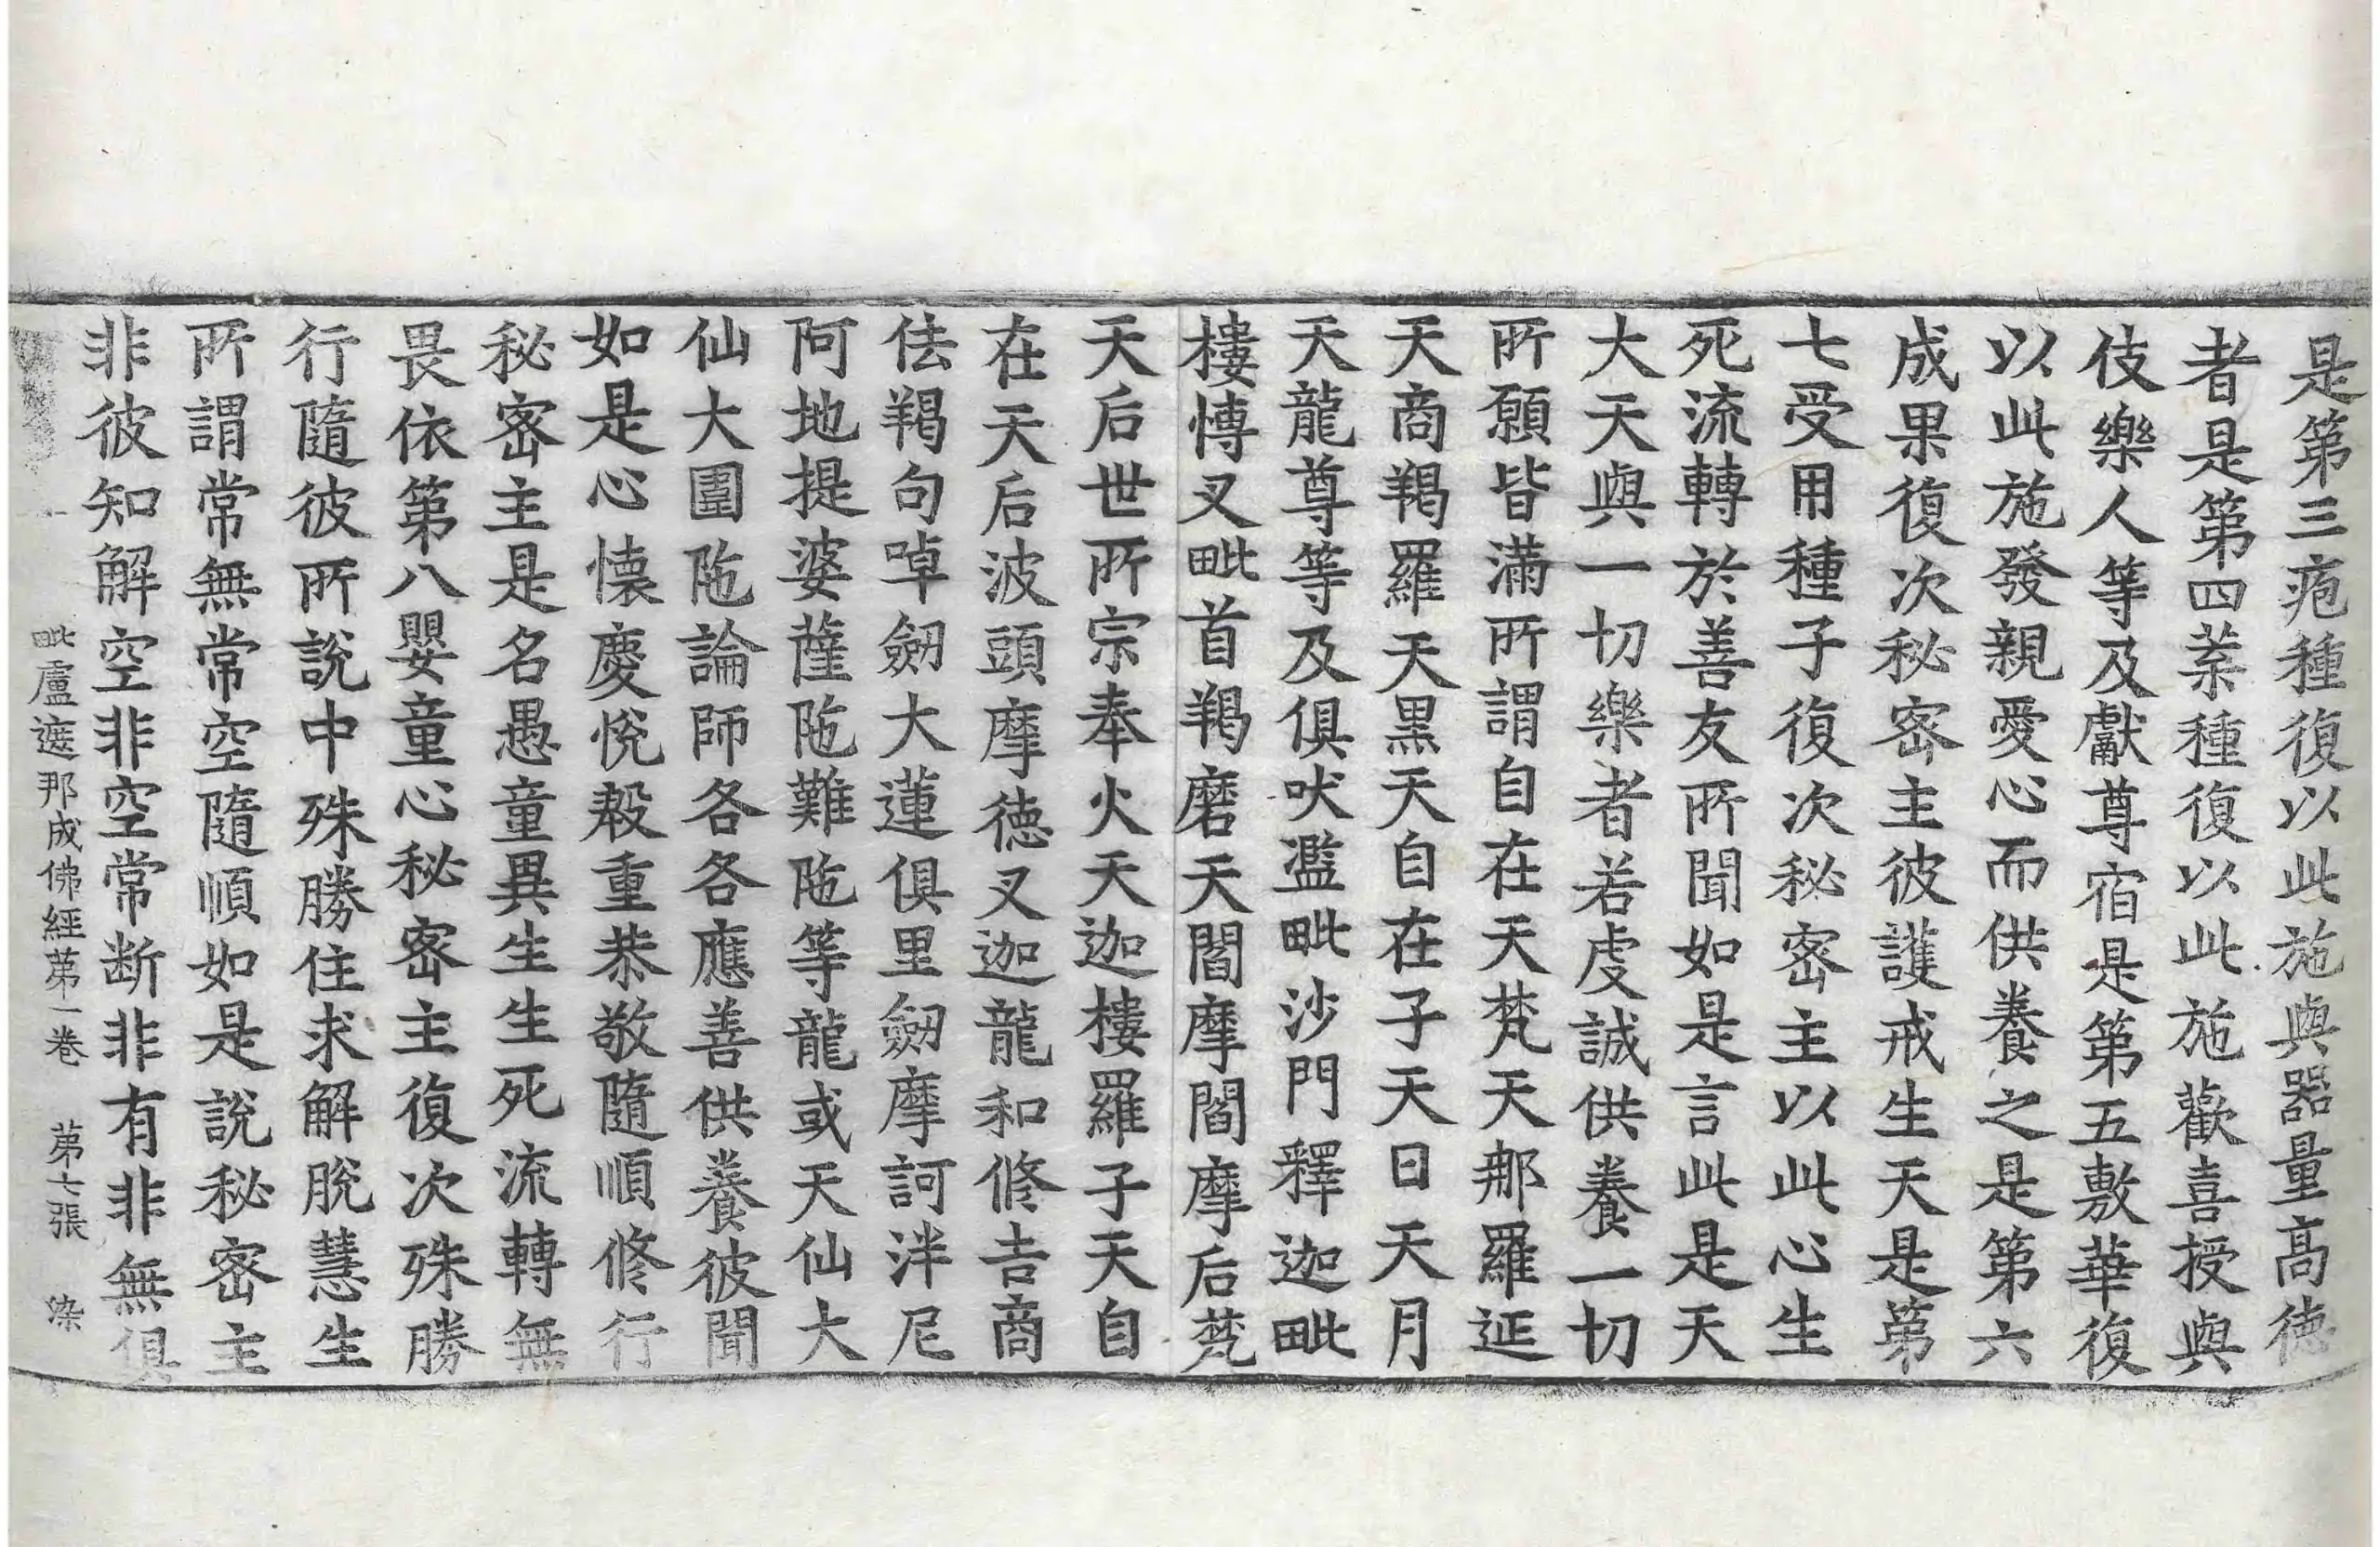 是第三疱種復以此施與器量高德
者是第四葉種復以此施歡喜授與
伎樂人等及獻尊宿是第五敷華復
以此施發親愛心而供養之是第六
成果復次秘密主彼護戒生天是第
七受用種子復次秘密主以此心生
死流轉於善友所聞如是言此是天
大天與一切樂者若虔誠供養一切
所願皆滿所謂自在天梵天那羅延
天商羯羅天黑天自在子天日天月
天龍尊等及俱吠濫毗沙門釋迦毗
樓博叉毗首羯磨天閻摩閻摩后梵
天后世所宗奉火天迦樓羅子天自
在天后波頭摩德叉迦龍和修吉商
佉羯句啅劒大蓮俱里劒摩訶泮尼
阿地提婆薩陁難陁等龍或天仙大
仙大圍陁論師各各應善供養彼聞
如是心懷慶悅殷重恭敬隨順修行
秘密主是名愚童異生生死流轉無
畏依第八嬰童心秘密主復次殊勝
行隨彼所說中殊勝住求解脫慧生
所謂常無常空隨順如是說秘密主
非彼知解空非空常断非有非無俱
毗盧遮那成佛經第一卷　第七張　染